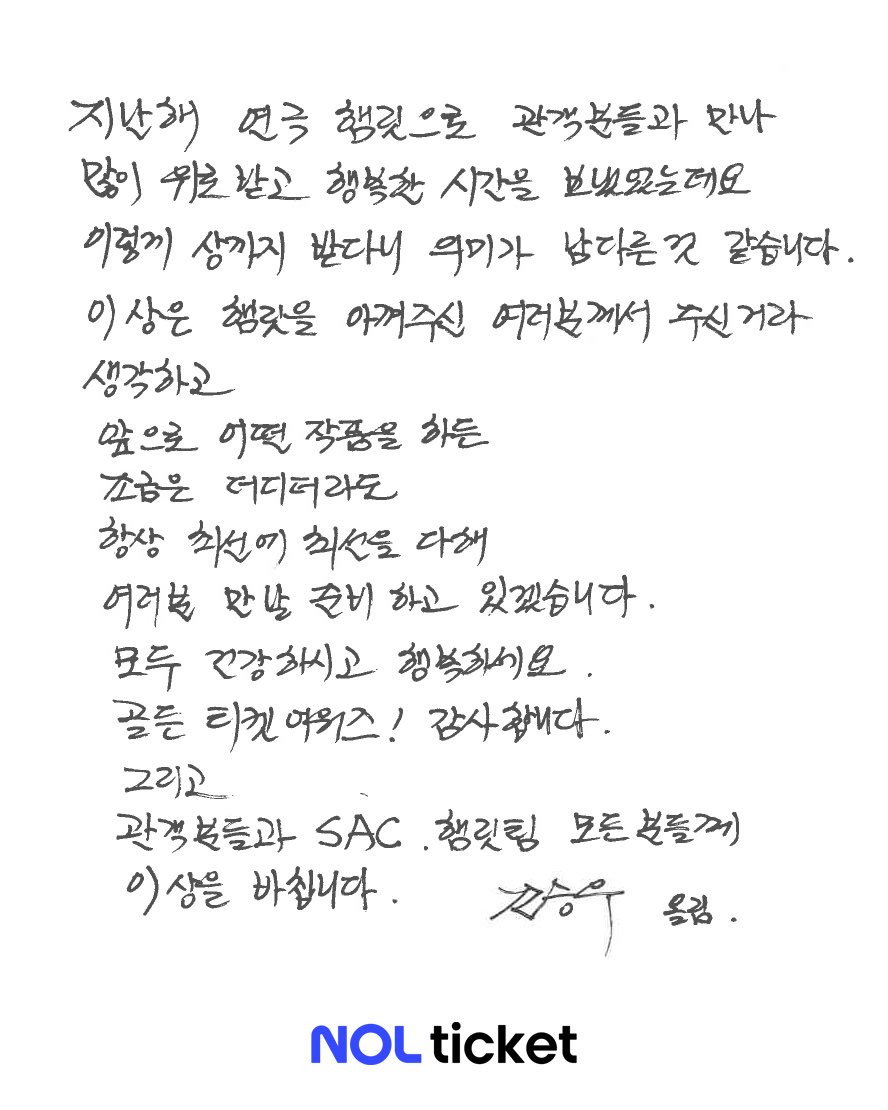 지난해 연극 햄릿으로 관객분들과 만나
많이 위로 받고 행복한 시간을 보냈었는데요
이렇게 상까지 받다니 의미가 남다른 것 같습니다.
이 상은 햄릿을 아껴주신 여러분께서 주신거라
생각하고
앞으로 어떤 작품을 하든
조금은 더디더라도
항상 최선에 최선을 다해
여러분 만날 준비 하고 있겠습니다.
모두 건강하시고 행복하세요.
골든 티켓 어워즈! 감사합니다.
그리고
관객분들과 SAC. 햄릿팀 모든 분들께
이 상을 바칩니다. 올림.
NOL ticket